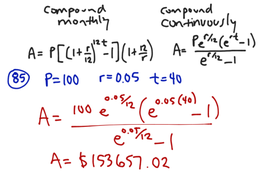 compound monthly
compound continuously
A = P[(1+r/12)^12t -1](1+12/r)
A = Pe^r/12(e^rt-1)/e^r/12-1
85 P=100 r=0.05 t=40
A = 100 e^0.05/12 (e^0.05(40) -1)/e^0.05/12 -1
A = $153657.02